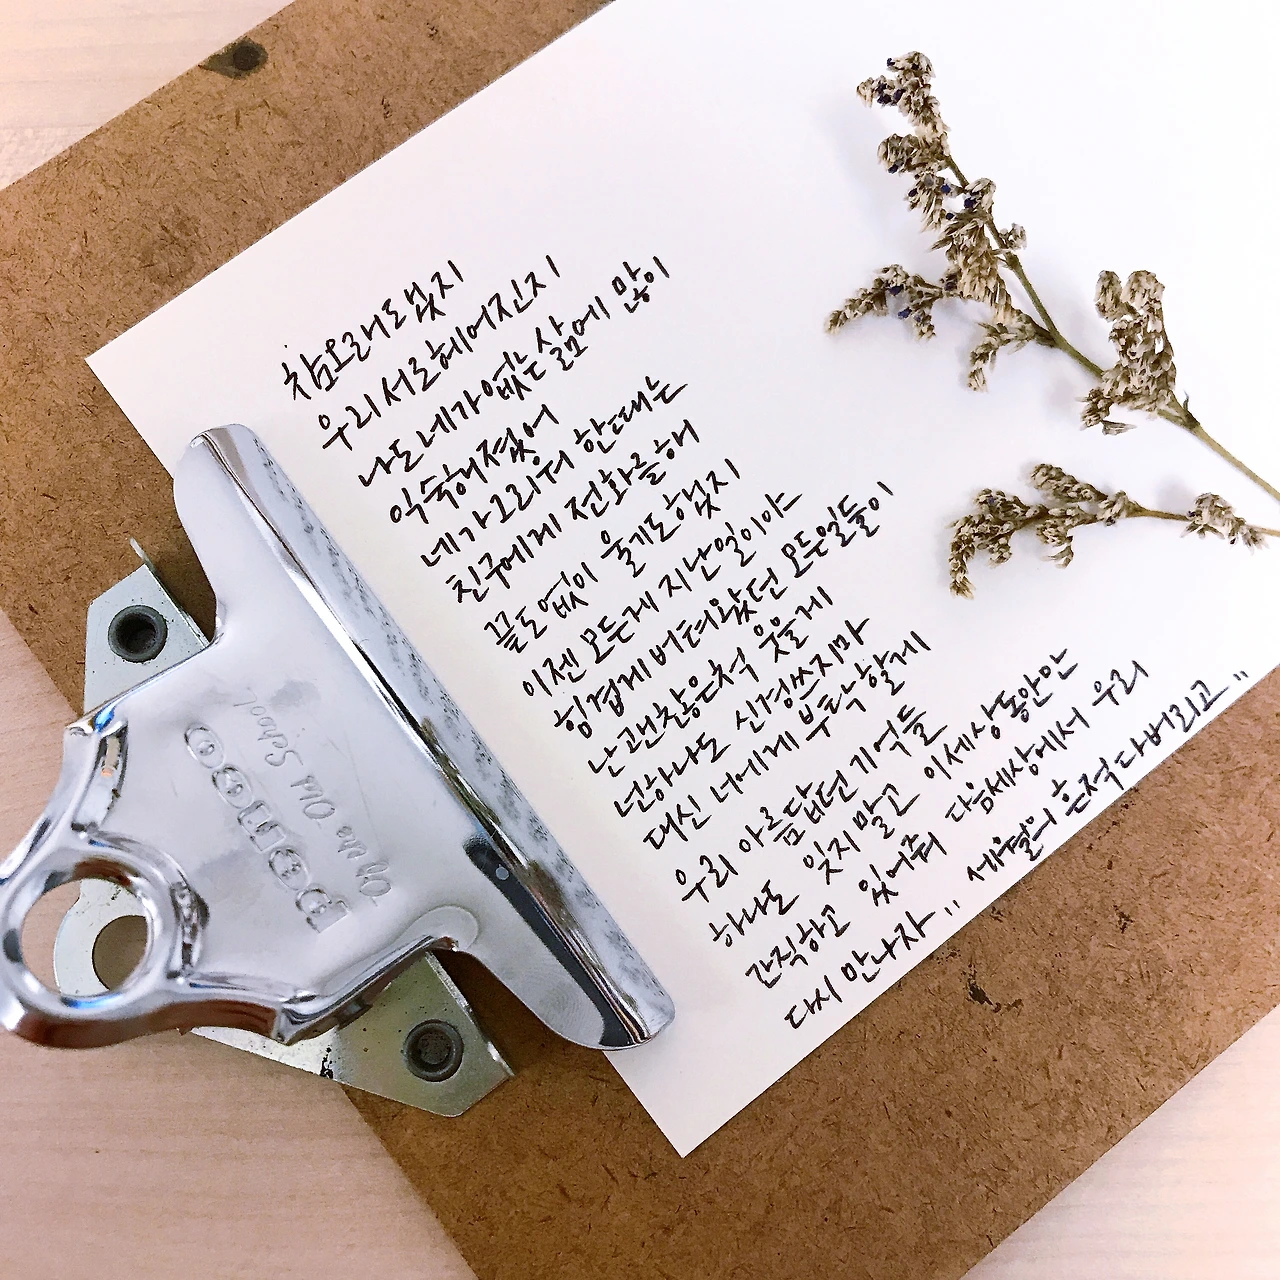 참 오래도 됐지
우리 서로 헤어진 지
나도 네가 없는 삶에 많이
익숙해졌어
네가 그리워 한때는
친구에게 전화를 해
끝도 없이 울기도 했지
이젠 모든게 지난 일이야
힘겹게 버텨왔던 모든일들이
난 괜찮은척 웃을게
넌 하나도 신경쓰지마
대신 너에게 부탁할게
우리 아름답던 기억들
하나도 잊지말고 이세상 동안 안
간직하고 있어줘 다음세상에서 우리
다시 만나자" 세월의 흔적 다 버리고"
penco
On Old School